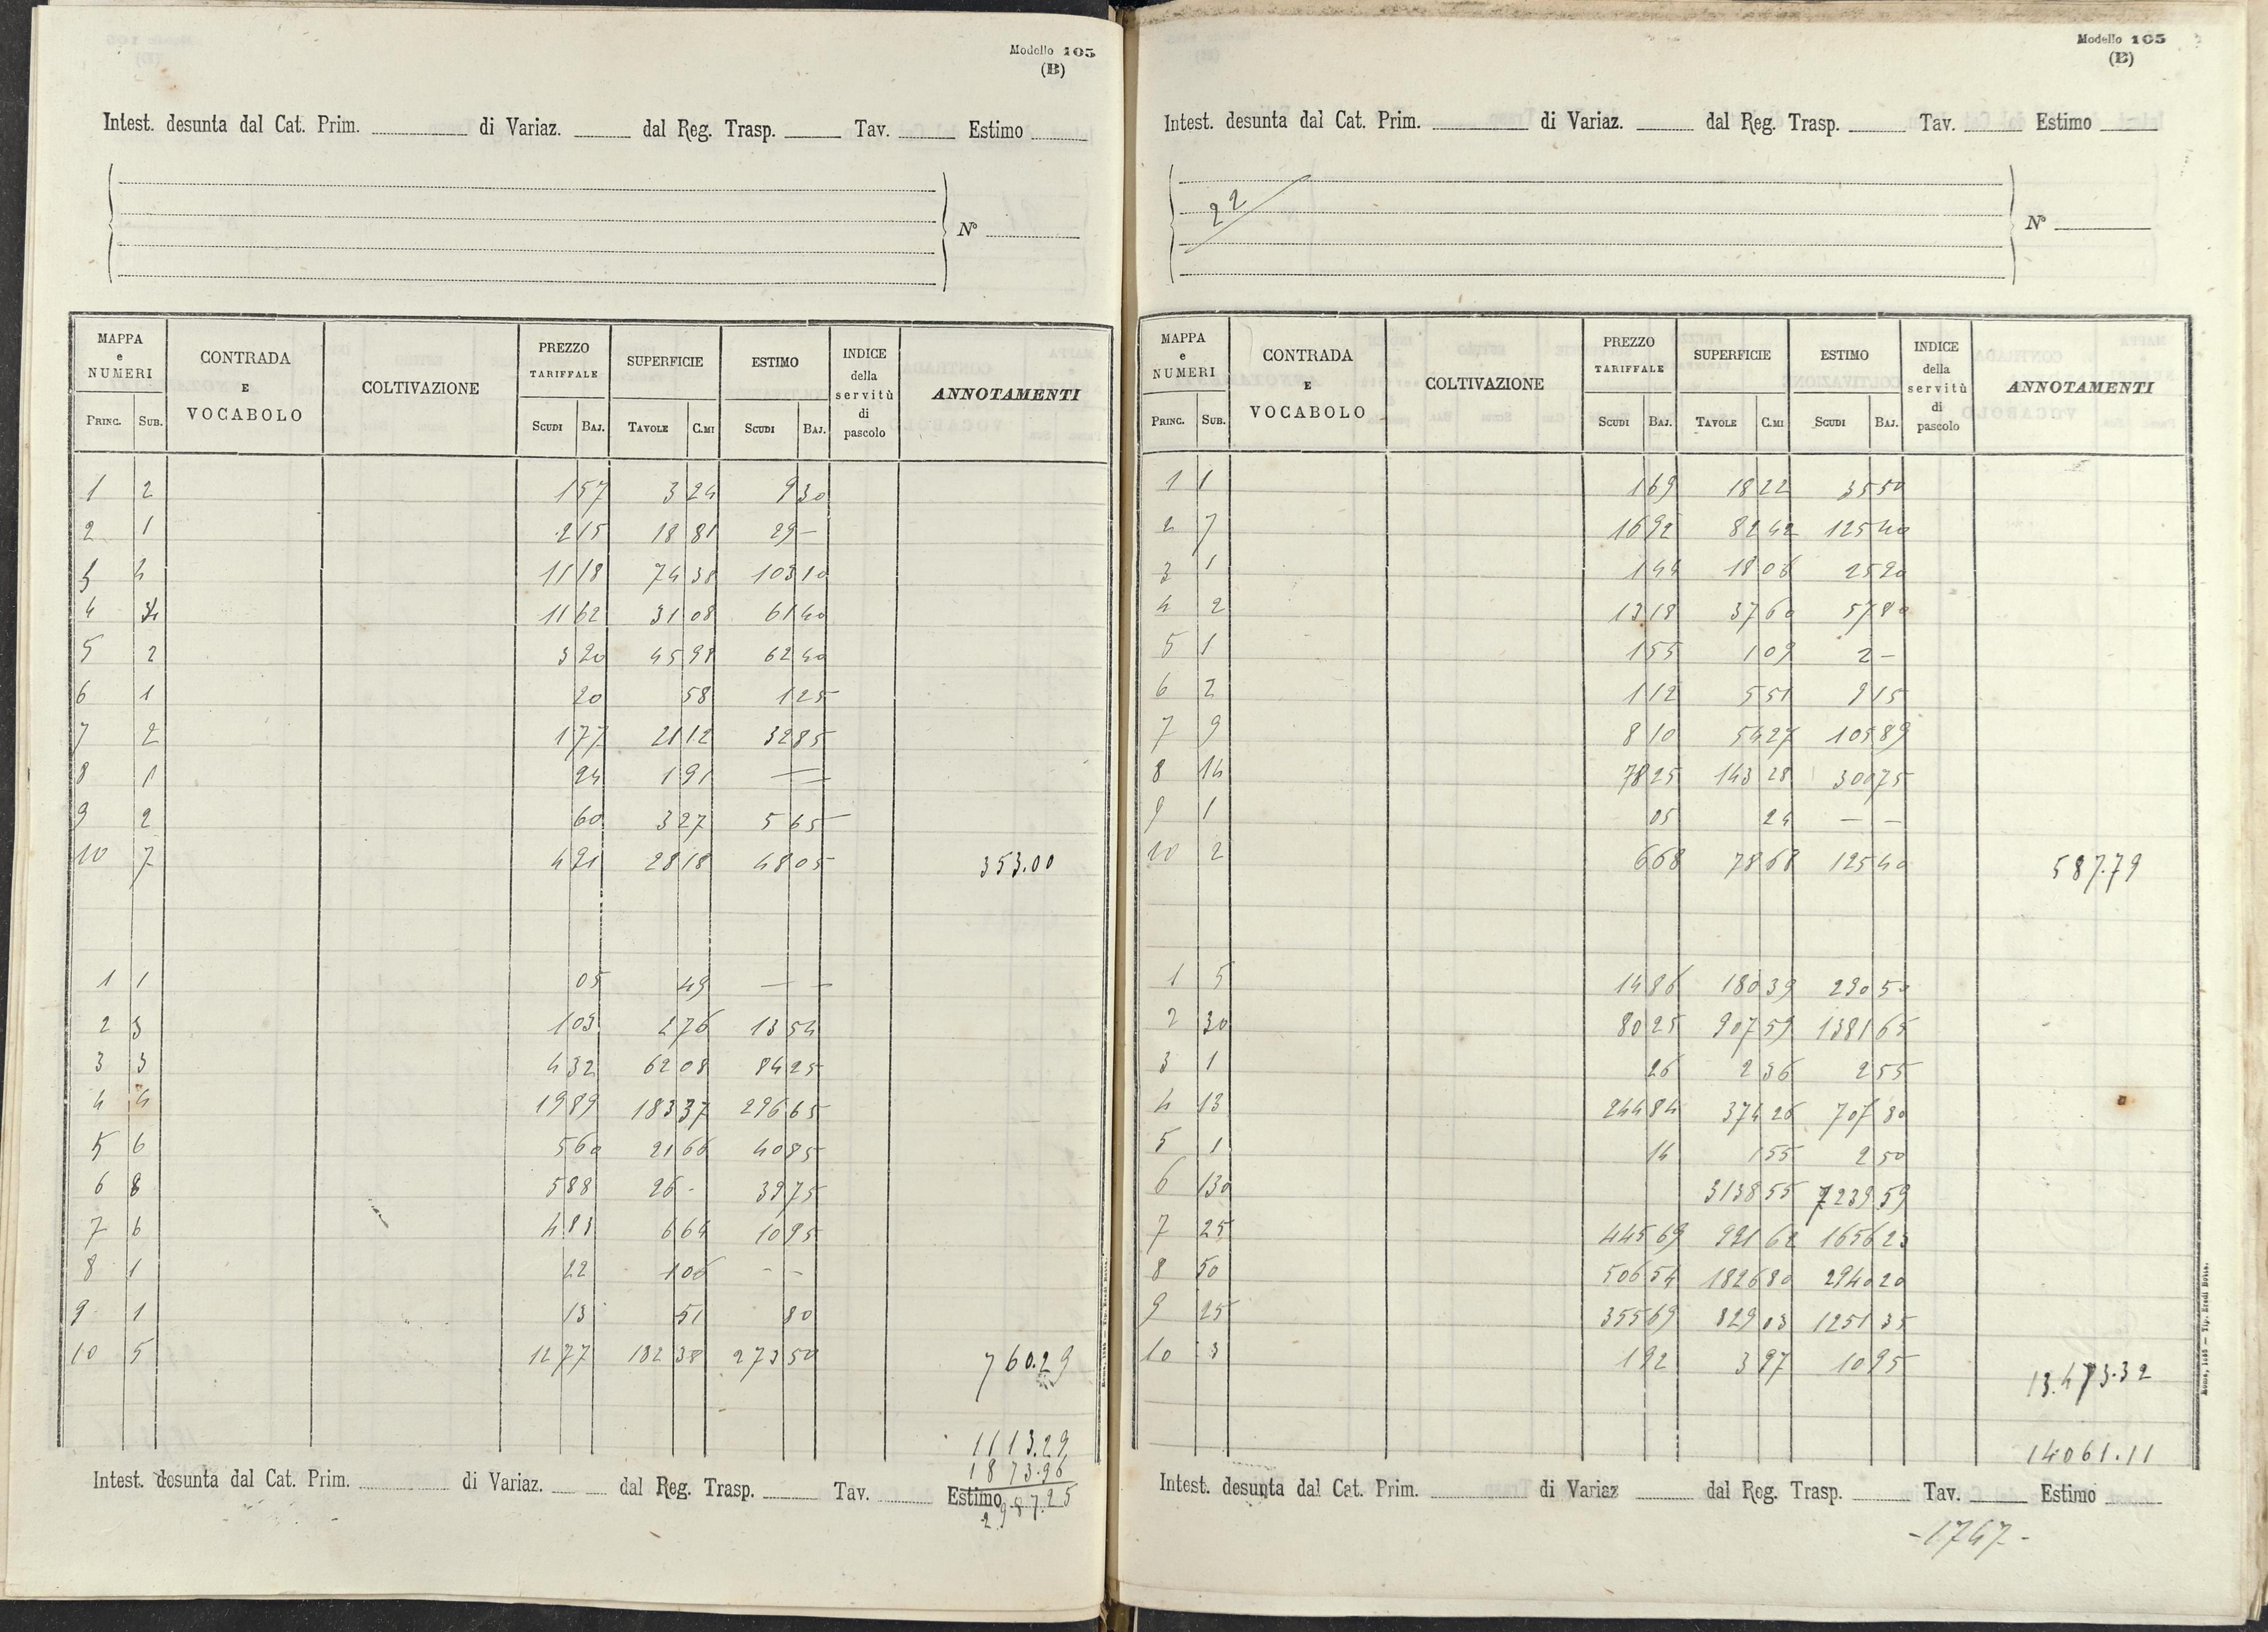 Modello 105
(B)
Intest. desunta dal Cat. Prim. di Variaz. dal Reg. Trasp. Tav. Estimo
N°
MAPPA e NUMERI CONTRADA E VOCABOLO COLTIVAZIONE PREZZO TARIFFALE SUPERFICIE ESTIMO INDICE della servitù di pascolo ANNOTAMENTI
PRINC. SUB. SCUDI BAJ. TAVOLE C.MI SCUDI BAJ.
1 2 1 57 3 24 9 30
2 1 2 15 18 81 29 —
3 4 11 18 74 38 103 10
4 11 62 31 08 61 40
5 2 3 20 45 98 62 40
6 1 20 58 1 25
7 2 1 77 21 12 32 85
8 1 24 1 91 — —
9 2 60 3 27 5 65
10 7 4 91 28 18 48 05 353.00
1 1 05 49 — —
2 3 1 03 2 76 13 54
3 3 4 32 62 08 84 25
4 4 19 89 183 37 296 65
5 6 5 60 21 66 40 85
6 8 5 88 26 - 39 75
7 6 4 83 6 64 10 95
8 1 22 1 06 - -
9 1 13 51 80
10 5 12 77 182 38 273 50 760.29
1113.29
1873.96
2987.25
Intest. desunta dal Cat. Prim. di Variaz. dal Reg. Trasp. Tav. Estimo
Modello 105
(B)
Intest. desunta dal Cat. Prim. di Variaz. dal Reg. Trasp. Tav. Estimo
22
N°
MAPPA e NUMERI CONTRADA E VOCABOLO COLTIVAZIONE PREZZO TARIFFALE SUPERFICIE ESTIMO INDICE della servitù di pascolo ANNOTAMENTI
PRINC. SUB. SCUDI BAJ. TAVOLE C.MI SCUDI BAJ.
1 1 1 69 18 22 35 50
2 7 16 92 82 42 125 40
3 1 1 44 18 06 25 20
4 2 13 18 37 60 57 80
5 1 1 55 1 09 2 —
6 2 1 12 5 51 9 15
7 9 8 10 54 27 105 89
8 14 78 25 143 28 300 75
9 1 05 24 — —
10 2 6 68 78 68 125 40 587.79
1 5 14 86 180 39 290 50
2 30 80 25 907 59 1381 65
3 1 26 2 36 2 55
4 13 244 84 374 26 707 80
5 1 14 1 55 2 50
6 130 3138 55 7239 59
7 25 445 69 991 62 1656 23
8 50 506 54 1826 80 2940 20
9 25 355 69 829 03 1251 35
10 3 1 92 3 97 10 95 13.473.32
14061.11
Intest. desunta dal Cat. Prim. di Variaz dal Reg. Trasp. Tav. Estimo
-1747-